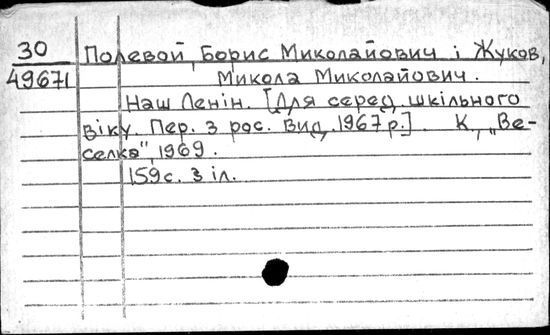 30
49671
Полевой, Борис Миколайович і Жуков,
Микола Миколайович.
Наш Ленін. [Для серед. шкільного
віку. Пер. з рос. вид. 1967 р.]. К., „Ве-
селка", 1969.
159 с. з іл.